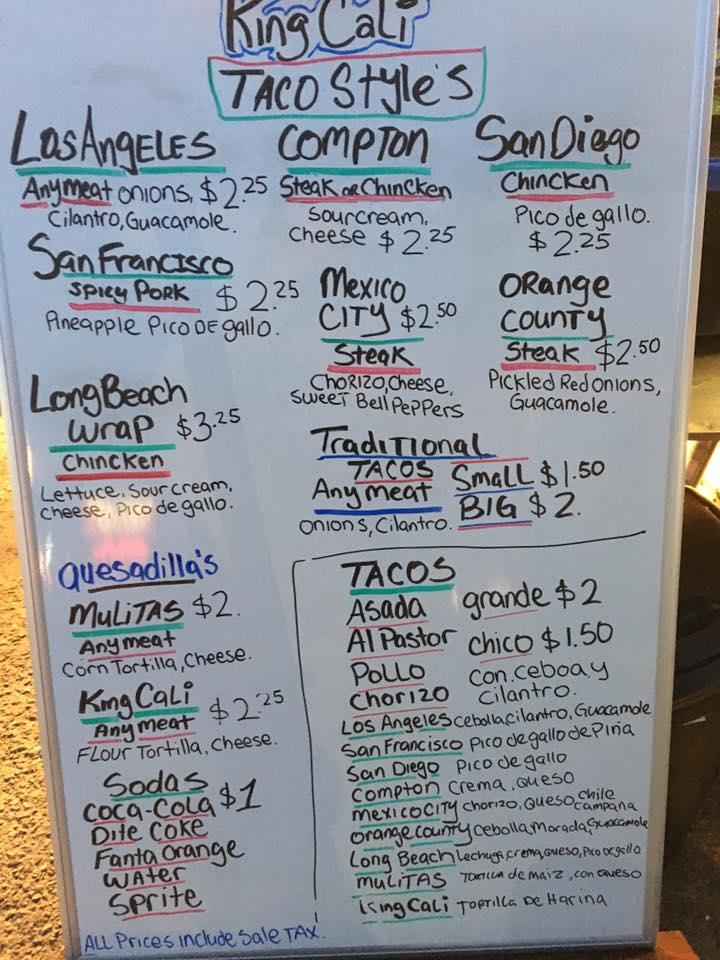 King Cali
TACO Style's
Los AngELES
Any meat onions, $2.25
Cilantro, Guacamole.
COMPTON
Steak or Chincken
Sourcream,
Cheese $2.25
San Diego
Chincken
Pico de gallo.
$2.25
San Francisco
SPICY PORK $2.25
Pineapple Pico DE gallo.
Mexico
CITY $2.50
Steak
Chorizo, Cheese,
Sweet Bell Peppers
Orange
County
Steak $2.50
Pickled Red onions,
Guacamole.
Long Beach
Wrap $3.25
Chincken
Lettuce, Sour cream,
cheese, Pico de gallo.
Traditional
TACOS Small $1.50
Any meat BIG $2.
onions, Cilantro.
Quesadilla's
MuLiTAS $2.
Any meat
Corn Tortilla, Cheese.
King Cali $2.25
Any meat
FLour Tortilla, Cheese.
Sodas
COCA-COLA $1
Dite Coke
Fanta Orange
Water
Sprite
TACOS
Asada grande $2
Al Pastor chico $1.50
Pollo con.ceboa.y
Chorizo Cilantro.
Los Angeles Cebolla, cilantro, Guacamole
San Francisco Pico de gallo de Piña
San Diego Pico de gallo
Compton Crema, Queso
Mexico City chorizo, Queso, chile campana
Orange County Cebolla, Morada, Guacamole
Long Beach Lechuga, crema, queso, Pico de gallo
MuLiTAS Tortilla de maiz, con queso
King Cali Tortilla De Harina
ALL Prices include Sale TAX.